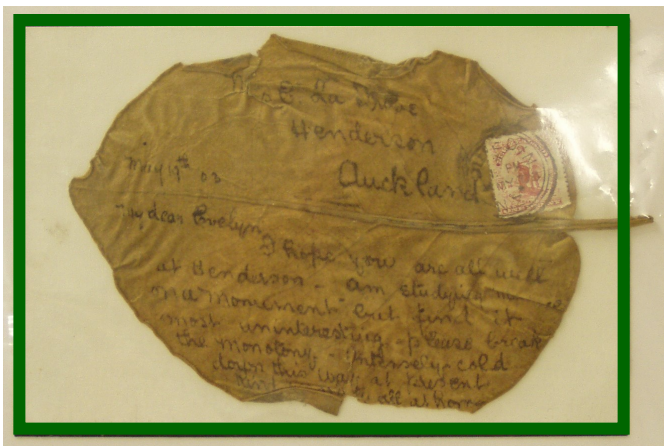 La Trobe
Henderson
Auckland
May 19th 03
My dear Evelyn,
I hope you are all well
at Henderson - am studying
monument but find it
most uninteresting - please break
the monotony - intensely cold
down this way at present
all at home